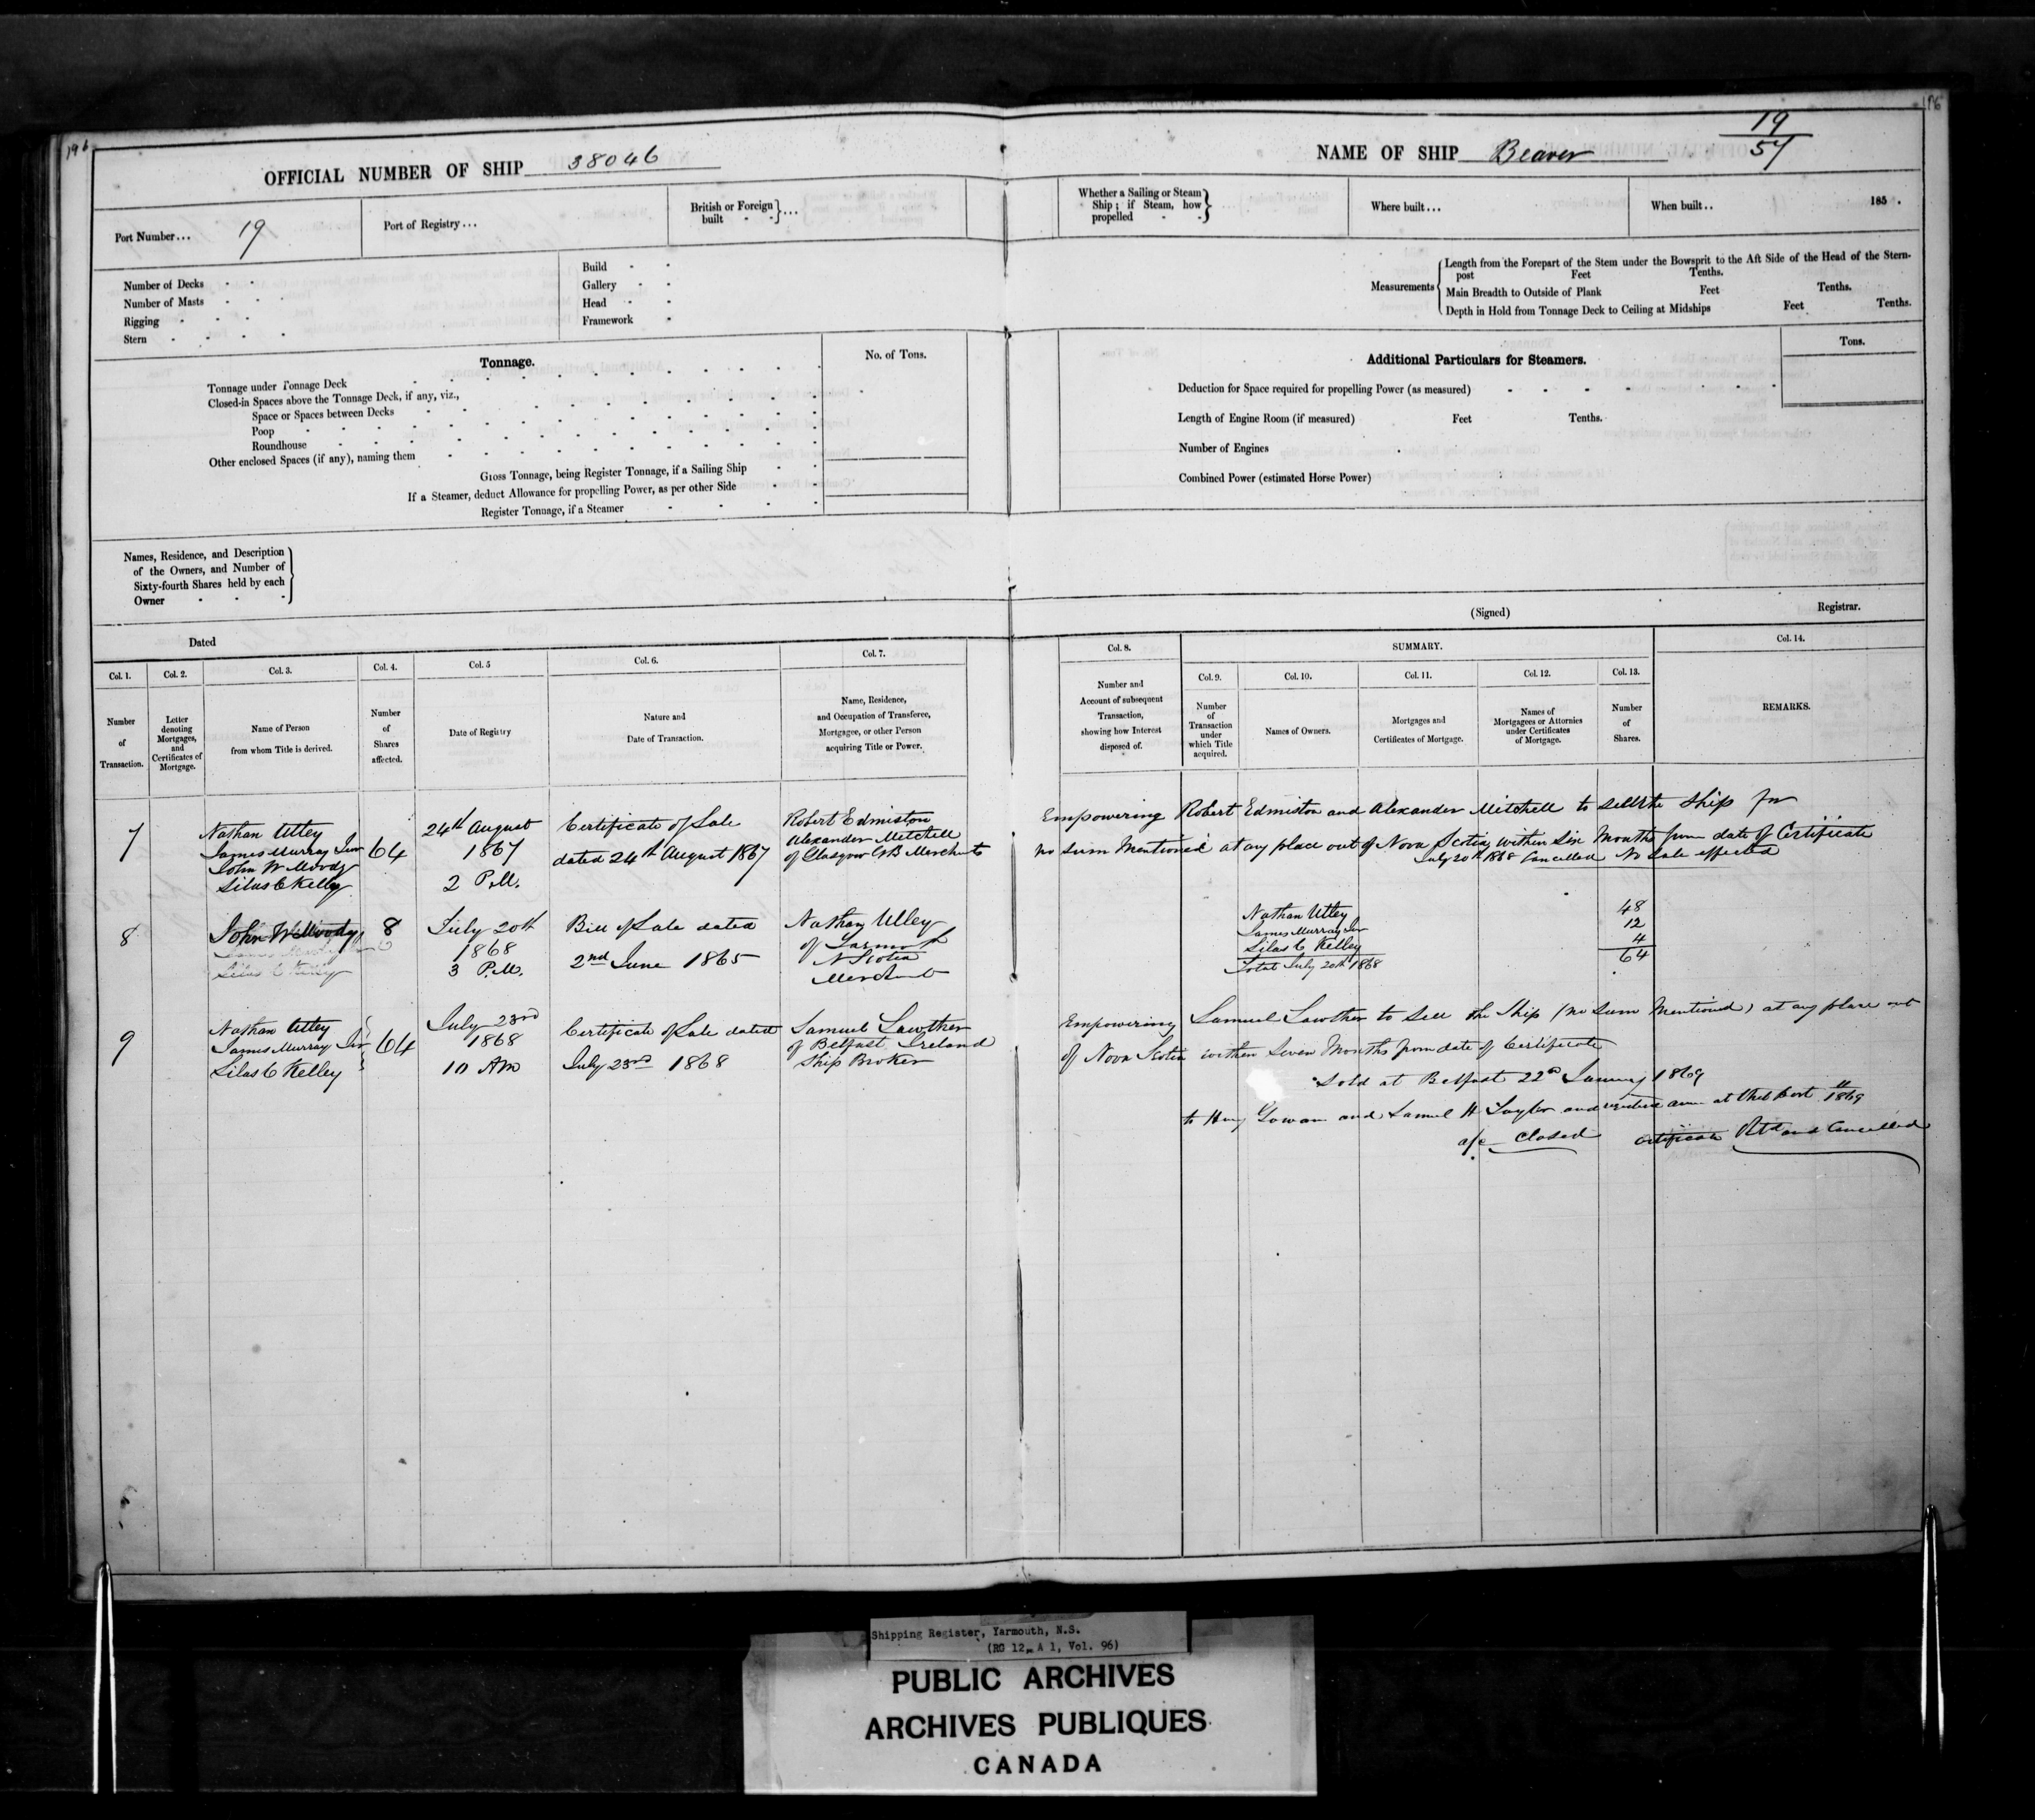 196
196
OFFICIAL NUMBER OF SHIP 38046
NAME OF SHIP Beaver
19
57
Port Number... 19
Port of Registry...
British or Foreign built - - }...
Whether a Sailing or Steam Ship; if Steam, how propelled - - }
Where built...
When built.. 185 .
Number of Decks
Number of Masts
Rigging
Stern
Build
Gallery
Head
Framework
Measurements
Length from the Forepart of the Stem under the Bowsprit to the Aft Side of the Head of the Stern-
post Feet Tenths.
Main Breadth to Outside of Plank Feet Tenths.
Depth in Hold from Tonnage Deck to Ceiling at Midships Feet Tenths.
Tonnage.
No. of Tons.
Tonnage under Tonnage Deck
Closed-in Spaces above the Tonnage Deck, if any, viz.,
Space or Spaces between Decks
Poop
Roundhouse
Other enclosed Spaces (if any), naming them
Gross Tonnage, being Register Tonnage, if a Sailing Ship
If a Steamer, deduct Allowance for propelling Power, as per other Side
Register Tonnage, if a Steamer
Additional Particulars for Steamers.
Tons.
Deduction for Space required for propelling Power (as measured)
Length of Engine Room (if measured) Feet Tenths.
Number of Engines
Combined Power (estimated Horse Power)
Names, Residence, and Description
of the Owners, and Number of
Sixty-fourth Shares held by each
Owner
(Signed) Registrar.
Dated
Col. 1.
Number
of
Transaction.
Col. 2.
Letter
denoting
Mortgages,
and
Certificates of
Mortgage.
Col. 3.
Name of Person
from whom Title is derived.
Col. 4.
Number
of
Shares
affected.
Col. 5
Date of Registry
Col. 6.
Nature and
Date of Transaction.
Col. 7.
Name, Residence,
and Occupation of Transferee,
Mortgagee, or other Person
acquiring Title or Power.
Col. 8.
Number and
Account of subsequent
Transaction,
showing how Interest
disposed of.
SUMMARY.
Col. 9.
Number
of
Transaction
under
which Title
acquired.
Col. 10.
Names of Owners.
Col. 11.
Mortgages and
Certificates of Mortgage.
Col. 12.
Names of
Mortgagees or Attornies
under Certificates
of Mortgage.
Col. 13.
Number
of
Shares.
Col. 14.
REMARKS.
7
Nathan Utley
James Murray Junr
John W Moody
Silas C Kelley
64
24th August
1867
2 P.M.
Certificate of Sale
dated 24th August 1867
Robert Edmiston
Alexander Mitchell
of Glasgow GB Merchants
Empowering Robert Edmiston and Alexander Mitchell to sell the Ship for
no sum Mentioned at any place out of Nova Scotia within Six Months from date of Certificate
July 20th 1868 Cancelled No Sale effected
8
John W Moody
Silas C Kelley
8
July 20th
1868
3 P.M.
Bill of Sale dated
2nd June 1865
Nathan Utley
of Yarmouth
N Scotia
Merchant
Nathan Utley 48
James Murray Jr 12
Silas C Kelley 4
Total July 20th 1868 64
9
Nathan Utley
James Murray Jnr
Silas C Kelley
64
July 23rd
1868
10 AM
Certificate of Sale dated
July 23rd 1868
Samuel Lawther
of Belfast Ireland
Ship Broker
Empowering Samuel Lawther to sell the Ship (no sum Mentioned) at any place out
of Nova Scotia within Seven Months from date of Certificate
Sold at Belfast 22nd January 1869
to Gowan and Samuel H Taylor and anew at that Port 1869
a/c closed Certificate Retd and Cancelled
Shipping Register, Yarmouth, N.S.
(RG 12, A 1, Vol. 96)
PUBLIC ARCHIVES
ARCHIVES PUBLIQUES
CANADA